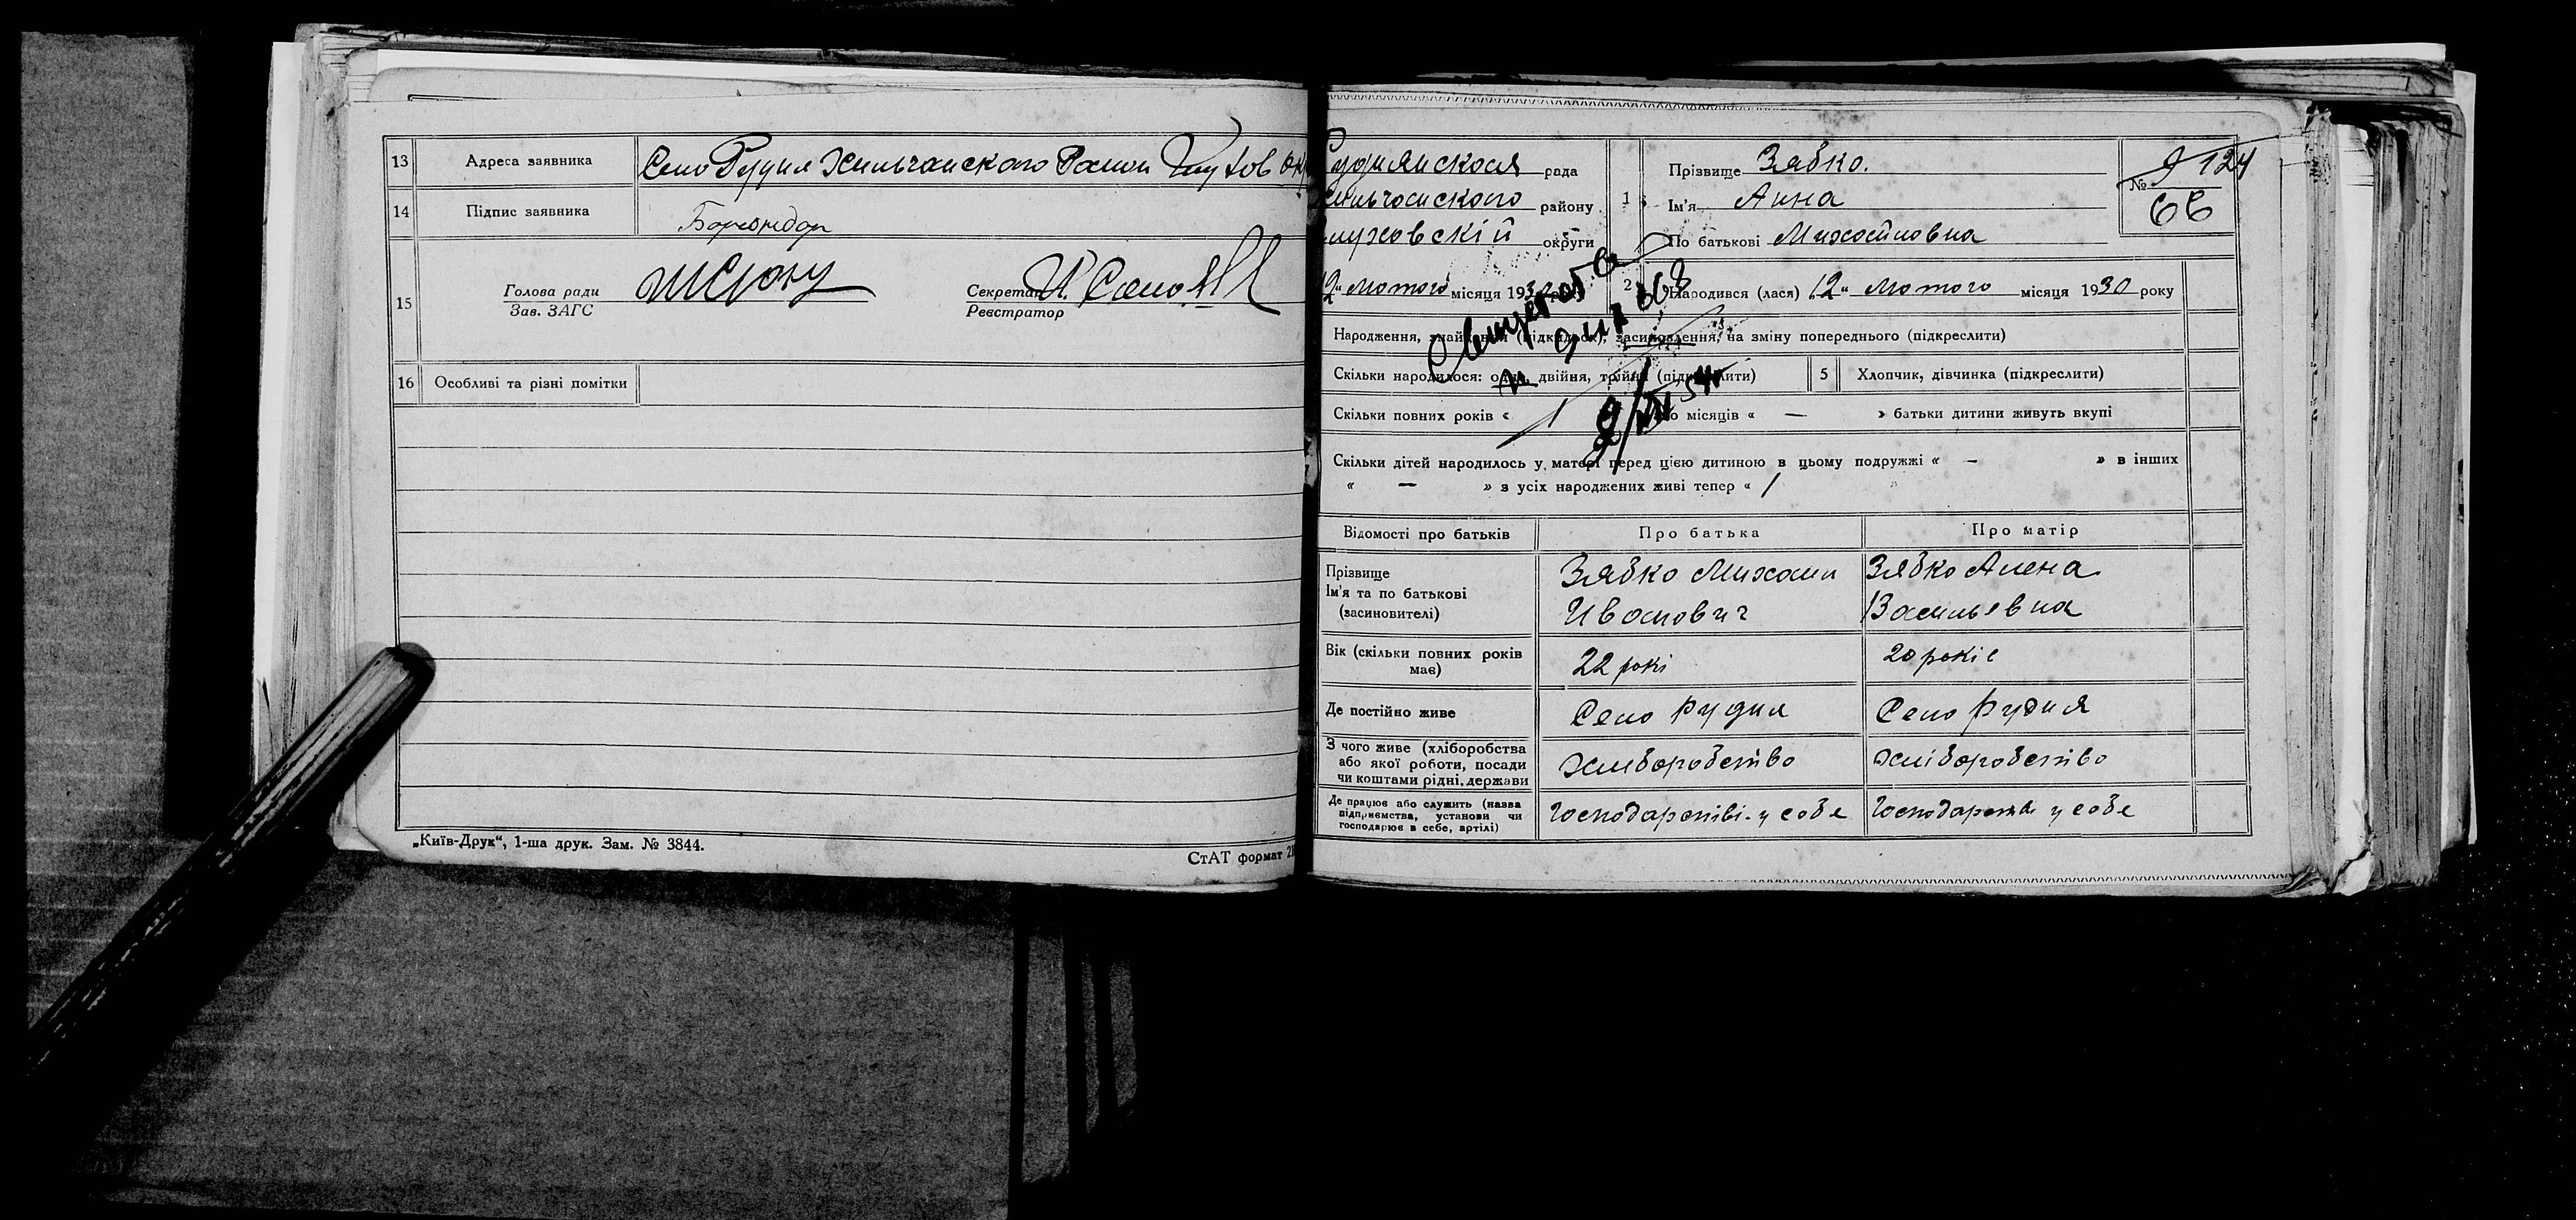 13 Адреса заявника Село Рудня Хильчанского Району Глухов Окр
14 Підпис заявника
15 Голова ради
Зав. ЗАГС
Секретар
Реєстратор
16 Особливі та різні помітки
„Київ-Друк“, 1-ша друк. Зам. № 3844.
СтАТ формат
Руднянская рада
района
району
округи
1 Прізвище Зябко.
Ім'я Анна
По батькові Михайловна
№ 124
66
12 „ Лютого місяця 1930
2 Народився (лася) 12 „ Лютого місяця 1930 року
Народження, знайдений (підкидьок), засиновлення, на зміну попереднього (підкреслити)
Скільки народилося: одна, двійня, трійня (підкреслити) 5 Хлопчик, дівчинка (підкреслити)
Скільки повних років « 1 або місяців « — » батьки дитини живуть вкупі
Скільки дітей народилось у матері перед цією дитиною в цьому подружжі « — » в інших
« — » з усіх народжених живі тепер « 1
Відомості про батьків Про батька Про матір
Прізвище
Ім'я та по батькові
(засиновителі)
Зябко Михаил
Иванович
Зябко Алена
Васильевна
Вік (скільки повних років
має)
22 рокі 20 років
Де постійно живе Село Рудня Село Рудня
З чого живе (хліборобства
або якої роботи, посади
чи коштами рідні, держави
хлиборобство хліборобство
Де працює або служить (назва
підприємства, установи чи
господарює в себе, артілі)
Господарстві у собе Господарстві у собе